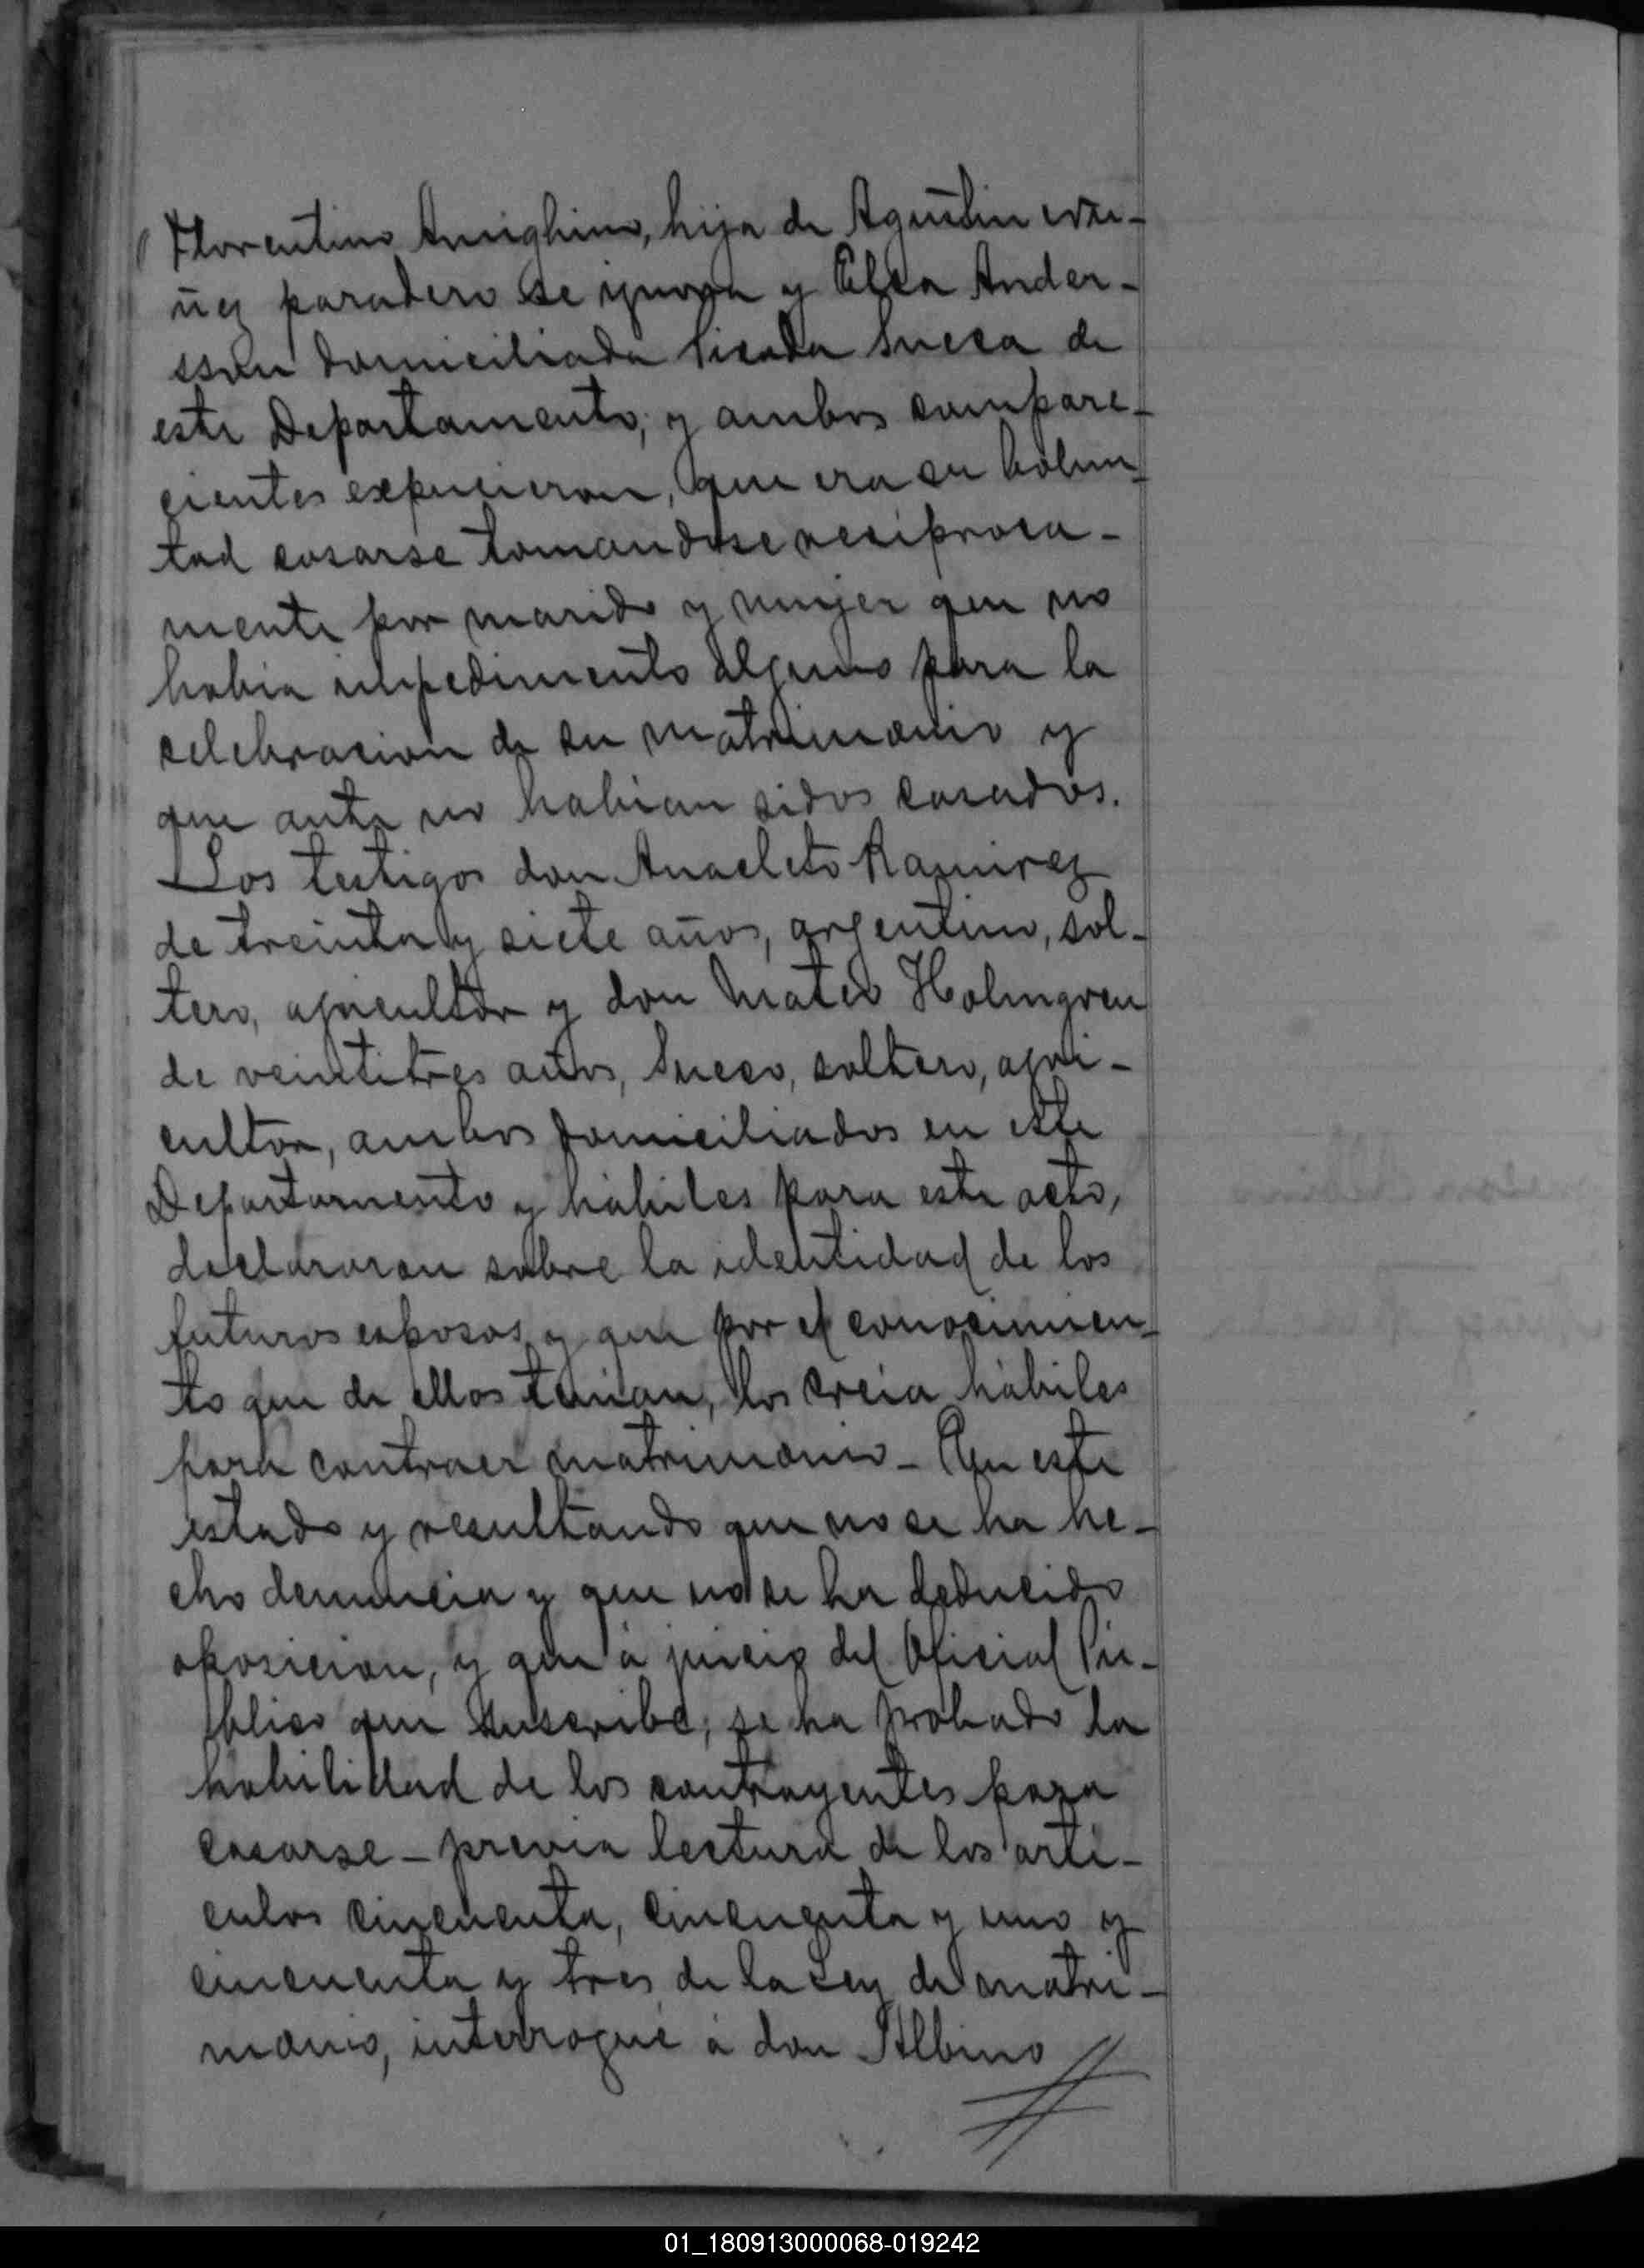 Florentino Ameghino, hija de Agustin Nu-
ñez paradero se ignora y Elsa Ander-
sson domiciliada Picada Sueca de
este Departamento; y ambos compare-
cientes expucieron, que era su bolun-
tad casarse tomandose reciproca-
mente por marido y mujer que no
habia impedimento alguno para la
celebracion de su matrimonio y
que ante no habian sidos casados.
Los testigos don Anacleto Ramirez
de treinta y siete años, argentino, sol-
tero, agricultor y don Mateo Holmgren
de veintitres años, Sueco, soltero, agri-
cultor, ambos domiciliados en este
Departamento y hábiles para este acto,
declararon sobre la identidad de los
futuros esposos y que por el conocimien-
to que de ellos tenian, los creía hábiles
para contraer matrimonio - En este
estado y resultando que no se ha he-
cho denuncia y que no se ha deducido
oposicion, y que á juicio del Oficial Pú-
blico que suscribe, se ha probado la
habilidad de los contrayentes para
casarse - previa lectura de los artí-
culos cincuenta, cincuenta y uno y
cincuenta y tres de la Ley de matri-
monio, interrogué á don Albino
01_180913000068-019242